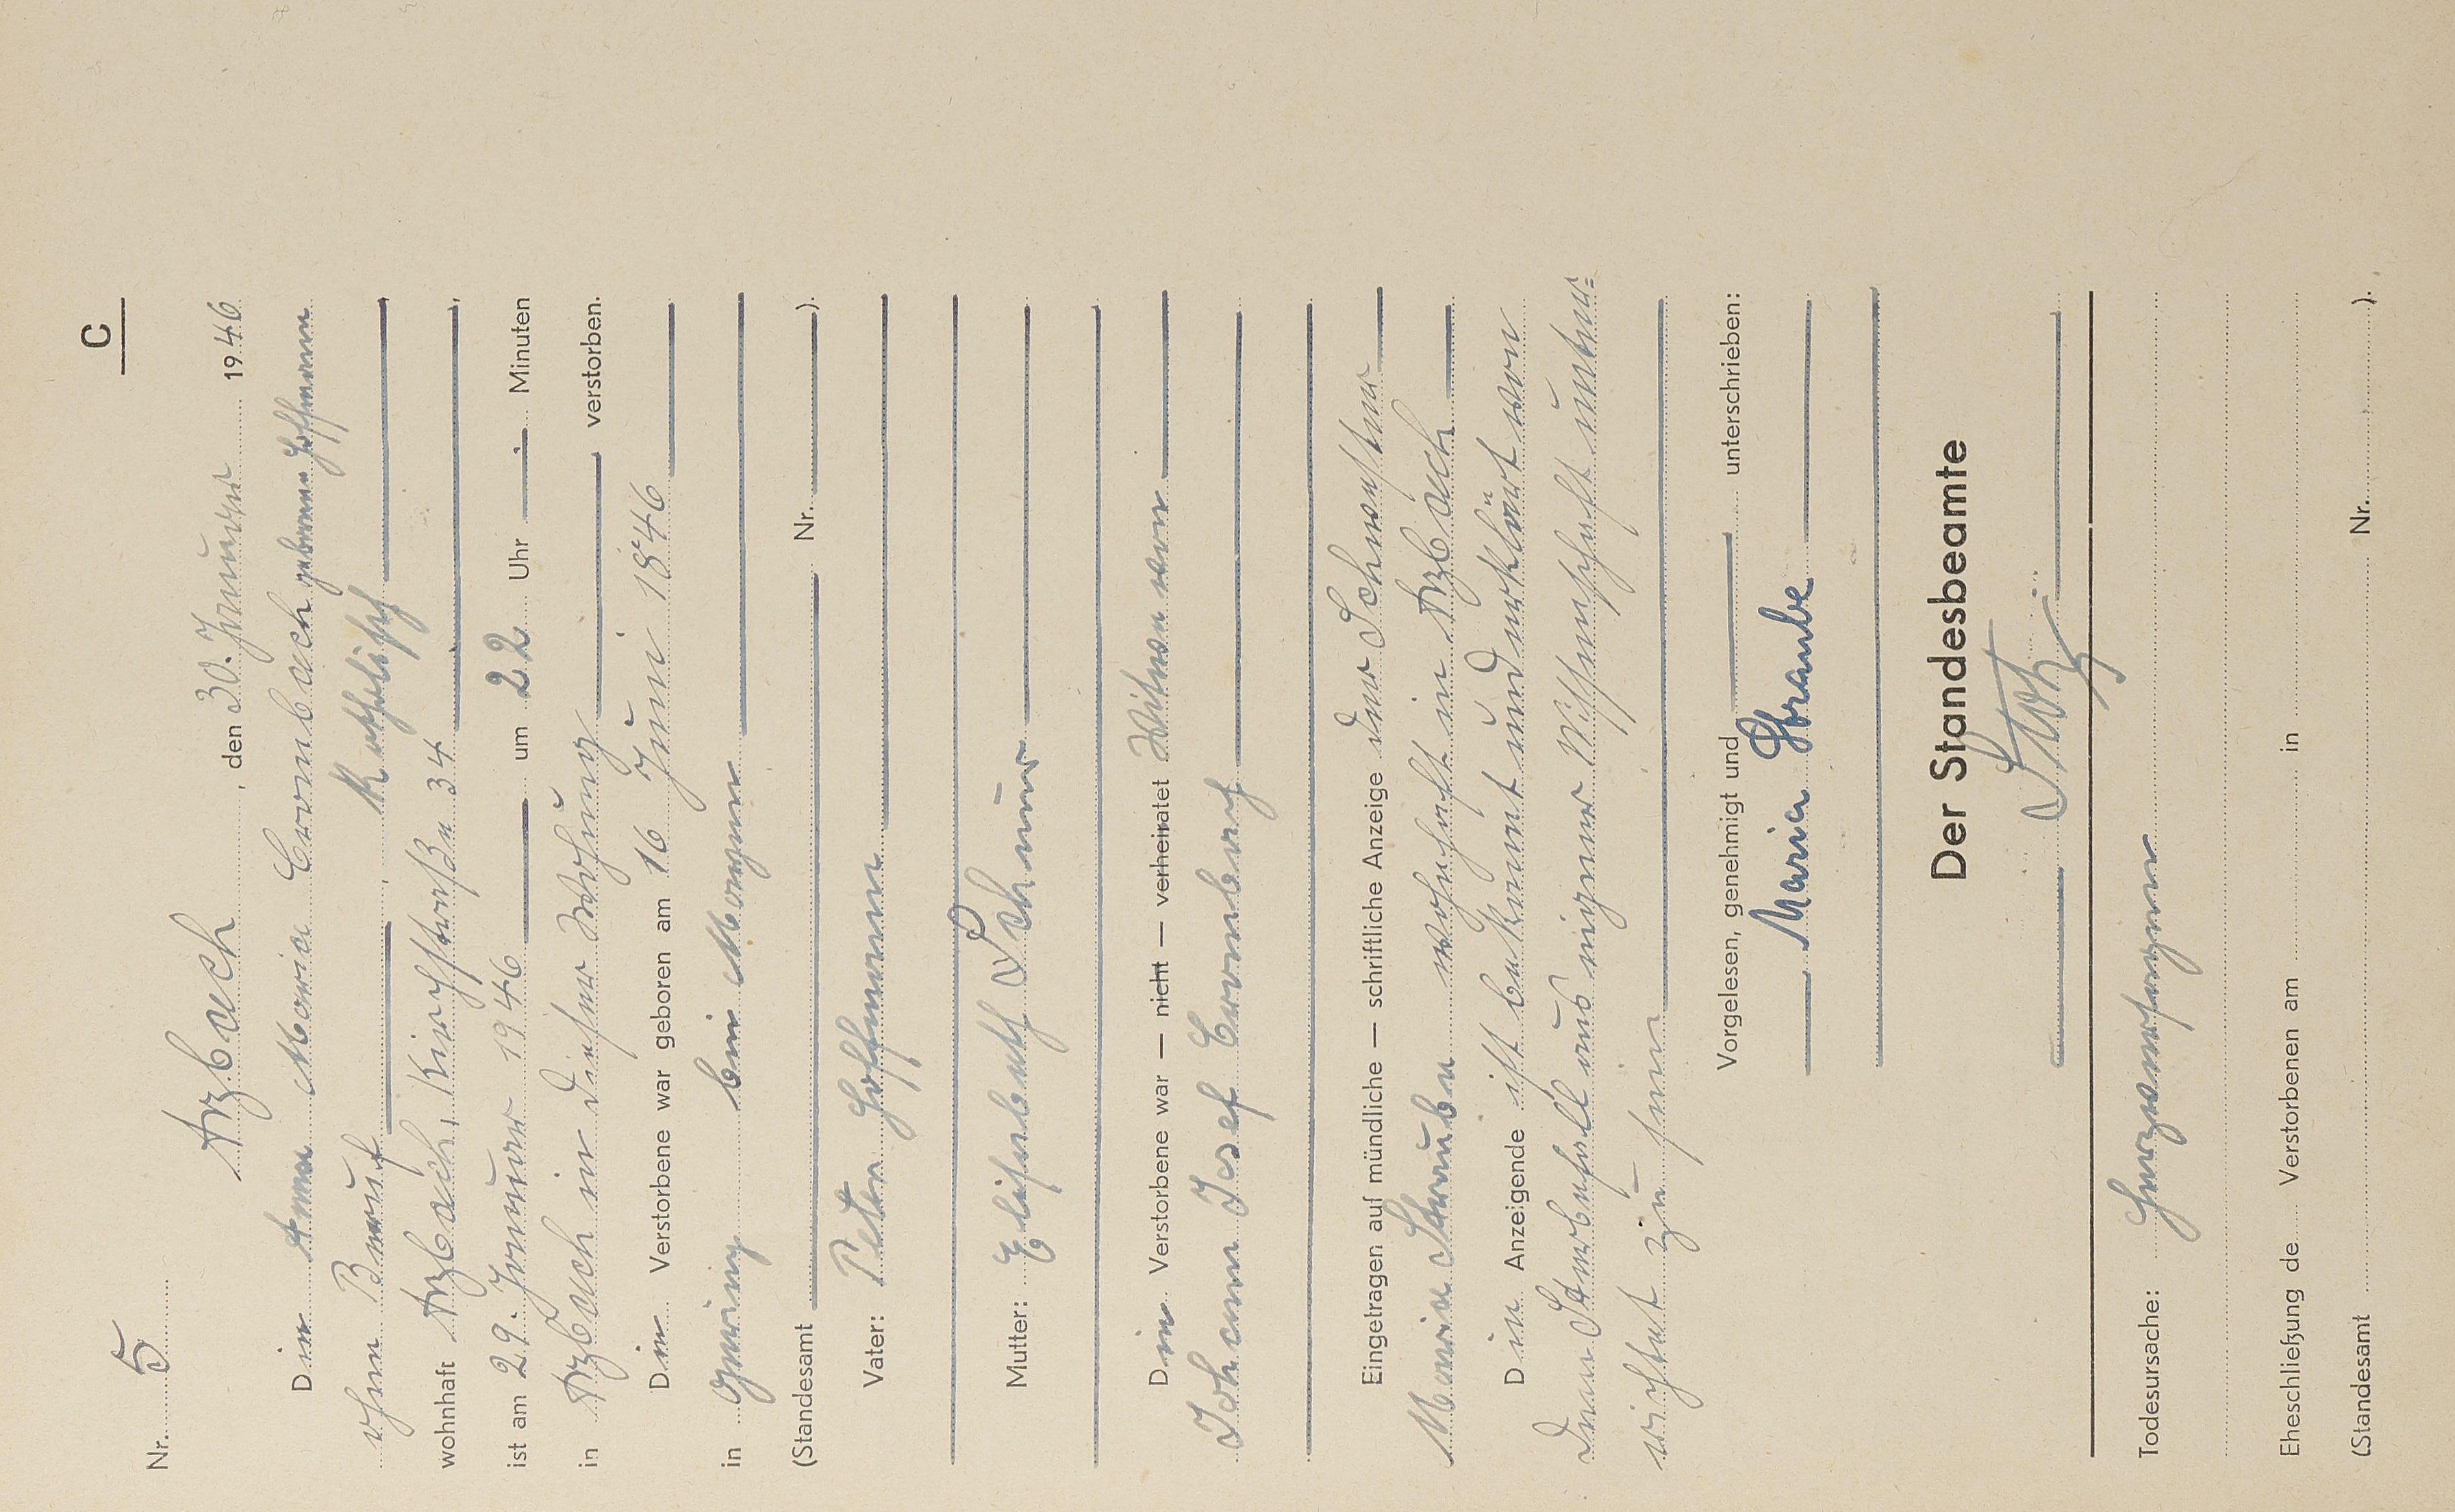 C
Nr. 5
Arzbach, den 30. Januar 1946
Die Anna Maria Crombach geborene Hoffmann
ohne Beruf, katholisch
wohnhaft Arzbach, Kirchstraße 34,
ist am 29. Januar 1946 um 22 Uhr Minuten
in Arzbach in dieser Wohnung verstorben.
Die Verstorbene war geboren am 16 Juni 1846
in bei
(Standesamt Nr. ).
Vater: Peter Hoffmann
Mutter: Elisabeth
Die Verstorbene war — nicht — verheiratet Witwe von
Johann Josef
Eingetragen auf mündliche — schriftliche Anzeige der Schwester
Maria Straube wohnhaft in Arzbach
Die Anzeigende ist bekannt und erklärt von
dem Sterbefall aus eigener Wissenschaft unter=
richtet zu sein
Vorgelesen, genehmigt und unterschrieben:
Maria Straube
Der Standesbeamte
Todesursache: Herzversagen
Eheschließung de Verstorbenen am in
(Standesamt Nr. ).